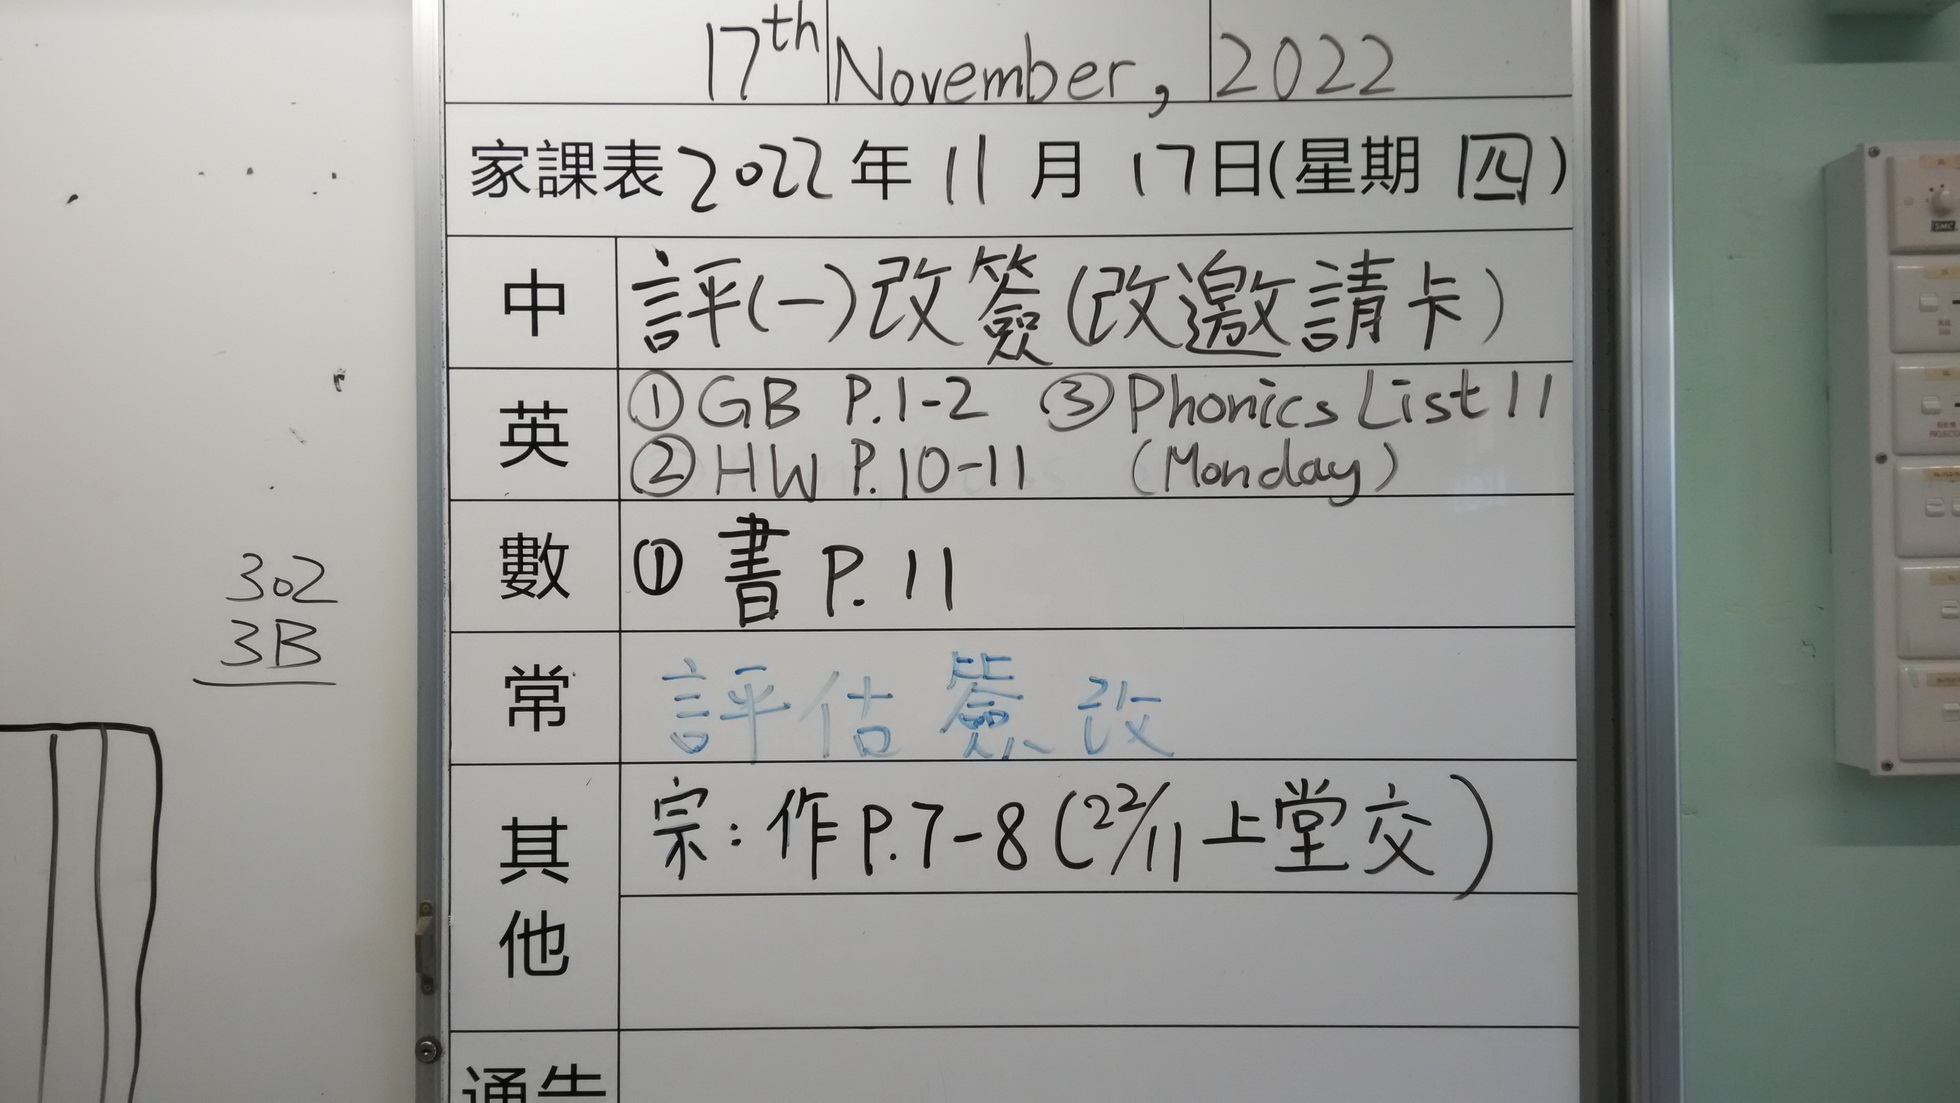 17th November, 2022
家課表 2022 年 11 月 17 日(星期 四)
中 評(一)改簽(改邀請卡)
英 ①GB P.1-2 ③Phonics List 11
②HW P.10-11 (Monday)
數 ① 書 P.11
常 評估簽改
其他 宗:作P.7-8(22/11上堂交)
通告
302
3B
SMC